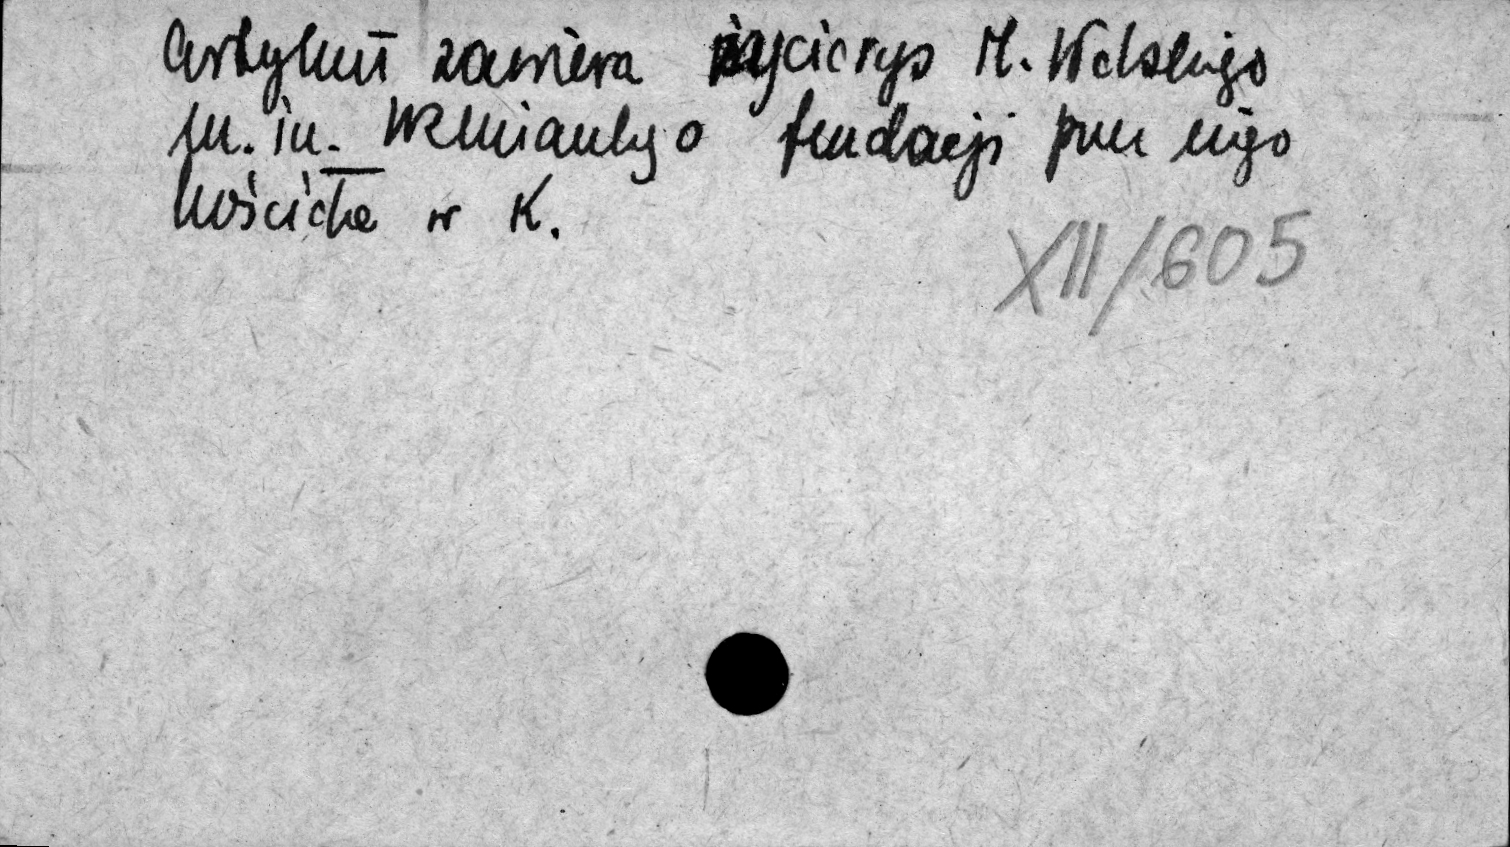 Artykuł zawiera życiorys M. Wolskiego
m.in. wzmianka o fundacji przez niego
kościoła w K.
XII/605